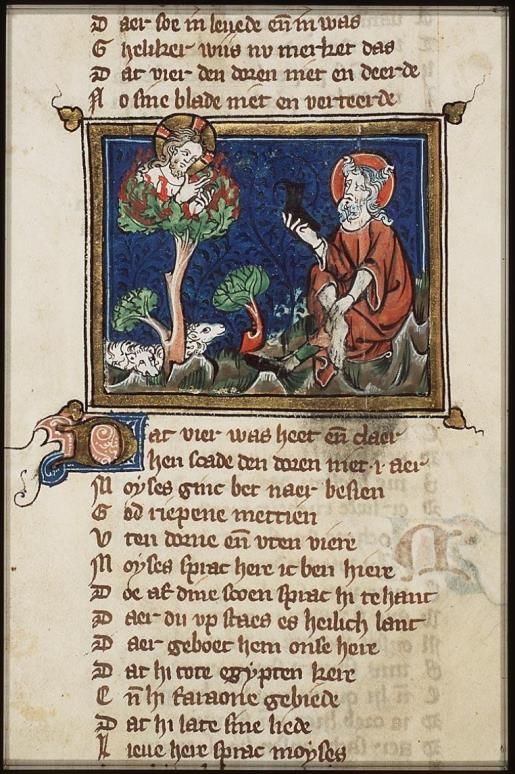 D aer soe in leuede en̄ in was
G heliker wiis nv merket das
D at vier den doren niet en deerde
N o sine blade niet en verteerde
D at vier was heet en̄ claer
hen scade den doren niet .i. aer
M oyses ginc bet naer besien
G od riepene mettien
V ten dorne en̄ vten viere
M oyses sprac here ic ben hiere
D oe af dine scoen sprac hi tehant
D aer du vp staes es heilich lant
D aer geboet hem onse here
D at hi tote egypten kere
E n̄ hi faraone gebiede
D at hi late sine liede
L ieue here sprac moyses